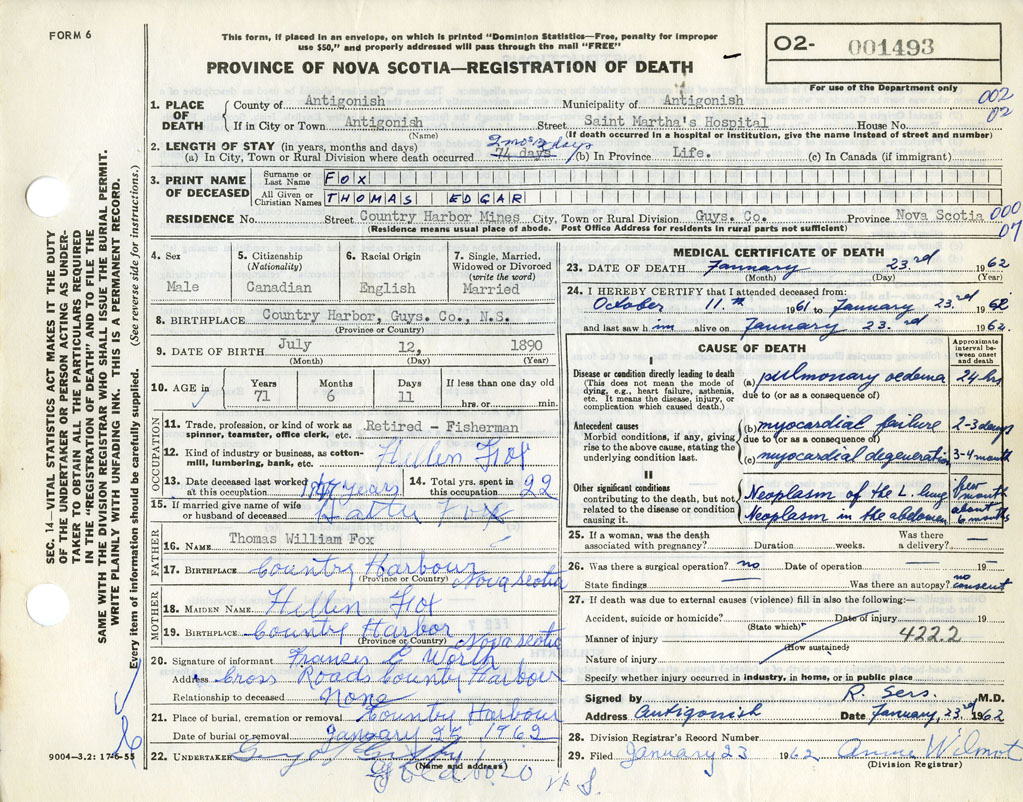 FORM 6
This form, if placed in an envelope, on which is printed "Dominion Statistics—Free, penalty for improper
use $50," and properly addressed will pass through the mail "FREE"
PROVINCE OF NOVA SCOTIA—REGISTRATION OF DEATH
O2- 001493
For use of the Department only
002
02
1. PLACE OF DEATH { County of Antigonish Municipality of Antigonish
If in City or Town Antigonish Street Saint Martha's Hospital House No.
(Name) (If death occurred in a hospital or institution, give the name instead of street and number)
2. LENGTH OF STAY (in years, months and days) 2 mos 12 days
(a) In City, Town or Rural Division where death occurred 74 days (b) In Province Life. (c) In Canada (if immigrant)
3. PRINT NAME OF DECEASED { Surname or Last Name FOX
All Given or Christian Names THOMAS EDGAR
RESIDENCE No. Street Country Harbor Mines City, Town or Rural Division Guys. Co. Province Nova Scotia 000
07
(Residence means usual place of abode. Post Office Address for residents in rural parts not sufficient)
4. Sex
Male
5. Citizenship
(Nationality)
Canadian
6. Racial Origin
English
7. Single, Married,
Widowed or Divorced
(write the word)
Married
8. BIRTHPLACE Country Harbor, Guys. Co., N.S.
(Province or Country)
9. DATE OF BIRTH July 12, 1890
(Month) (Day) (Year)
10. AGE in Years Months Days If less than one day old
71 6 11 hrs. or min.
OCCUPATION
11. Trade, profession, or kind of work as
spinner, teamster, office clerk, etc. Retired - Fisherman
12. Kind of industry or business, as cotton-
mill, lumbering, bank, etc. Hellen Fox
13. Date deceased last worked
at this occupation years
14. Total yrs. spent in
this occupation 22
15. If married give name of wife
or husband of deceased Hattie Fox
FATHER
16. NAME Thomas William Fox
17. BIRTHPLACE Country Harbour Nova Scotia
(Province or Country)
MOTHER
18. MAIDEN NAME Hellen Fox
19. BIRTHPLACE County Harbor Nova Scotia
(Province or Country)
20. Signature of informant Francis E Worth
Address Cross Roads County Harbour
Relationship to deceased None
21. Place of burial, cremation or removal Country Harbour
Date of burial or removal January 25 1962
22. UNDERTAKER
(Name and address)
Goldboro N.S.
MEDICAL CERTIFICATE OF DEATH
23. DATE OF DEATH January 23rd 1962
(Month) (Day) (Year)
24. I HEREBY CERTIFY that I attended deceased from:
October 11.th 1961 to January 23.rd 1962
and last saw h im alive on January 23.rd 1962.
CAUSE OF DEATH
Approximate
interval be-
tween onset
and death
I
Disease or condition directly leading to death
(This does not mean the mode of
dying, e.g., heart failure, asthenia,
etc. It means the disease, injury, or
complication which caused death.)
(a) pulmonary oedema 24 hrs
due to (or as a consequence of)
Antecedent causes
Morbid conditions, if any, giving
rise to the above cause, stating the
underlying condition last.
(b) myocardial failure 2-3 days
due to (or as a consequence of)
(c) myocardial degeneration 3-4 month
II
Other significant conditions
contributing to the death, but not
related to the disease or condition
causing it.
Neoplasm of the L. lung few month
Neoplasm in the abdomen about 6 months
25. If a woman, was the death
associated with pregnancy? Duration weeks. Was there
a delivery? —
26. Was there a surgical operation? no Date of operation — 19 —
State findings — Was there an autopsy? no consent
27. If death was due to external causes (violence) fill in also the following:—
Accident, suicide or homicide? Date of injury 19
(State which)
Manner of injury 422.2
(How sustained)
Nature of injury
Specify whether injury occurred in industry, in home, or in public place
Signed by R. Sers. M.D.
Address Antigonish Date January, 23.rd 1962
28. Division Registrar's Record Number
29. Filed January 23 1962 Anne Wilmot
(Division Registrar)
SEC. 14—VITAL STATISTICS ACT MAKES IT THE DUTY
OF THE UNDERTAKER OR PERSON ACTING AS UNDER-
TAKER TO OBTAIN ALL THE PARTICULARS REQUIRED
IN THE "REGISTRATION OF DEATH" AND TO FILE THE
SAME WITH THE DIVISION REGISTRAR WHO SHALL ISSUE THE BURIAL PERMIT.
WRITE PLAINLY WITH UNFADING INK. THIS IS A PERMANENT RECORD.
Every item of information should be carefully supplied. (See reverse side for instructions.)
9004—3.2: 17-6-55